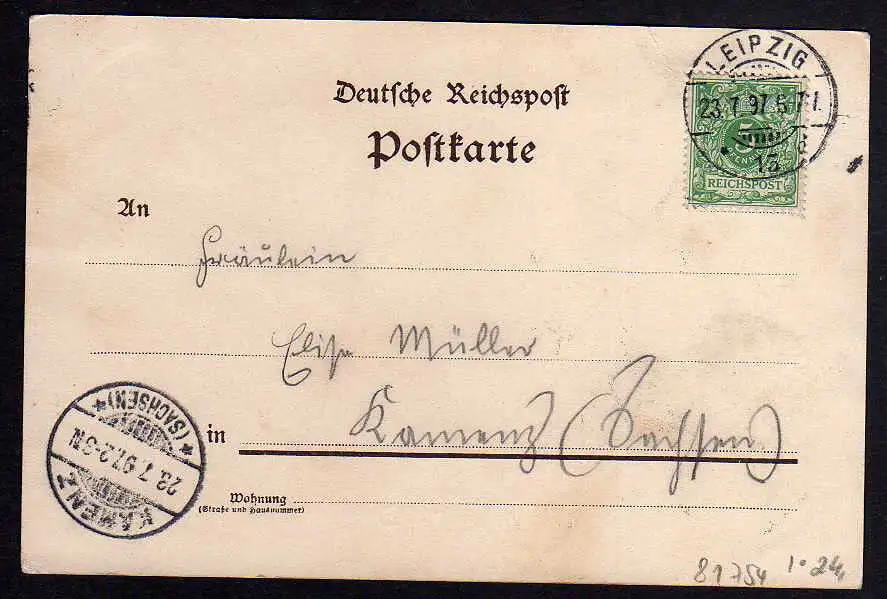 Deutsche Reichspost
Postkarte
LEIPZIG
23.7.97.5-7 I.
13
REICHSPOST
An
Fräulein
Elise Müller
in Kamenz (Sachsen)
Wohnung
(Straße und Hausnummer)
KAMENZ
23.7.97.2-3N
*(SACHSEN)*
81754